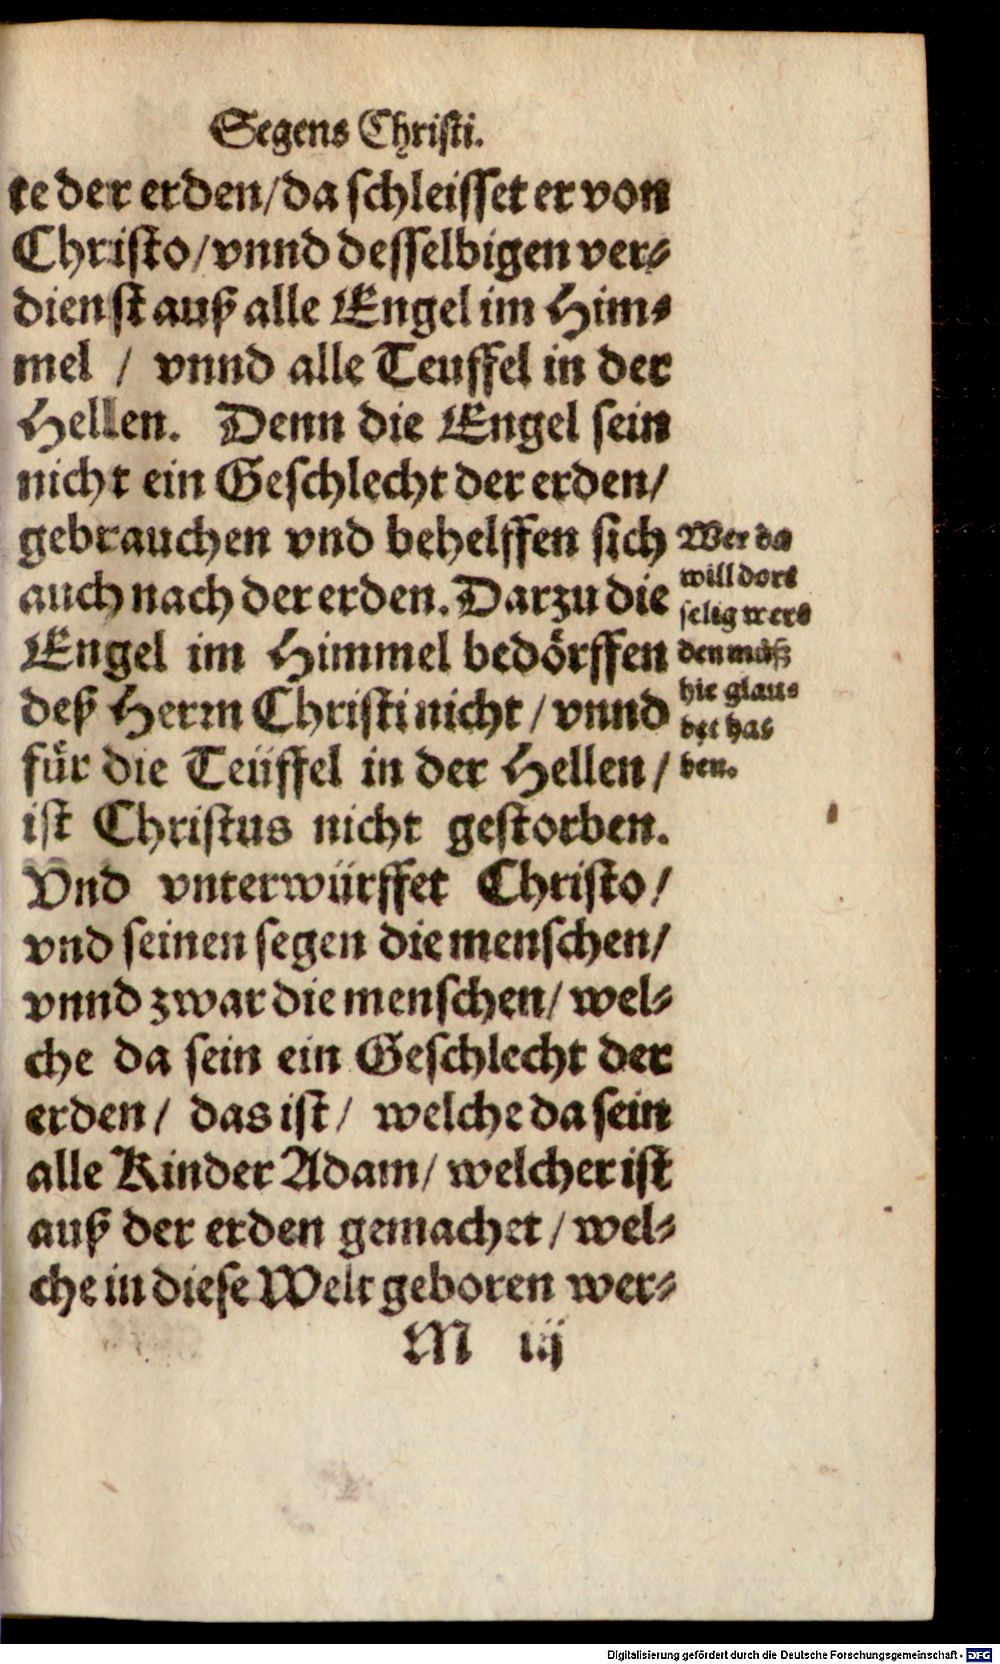 Segens Christi.
te der erden/ da schleisset er von
Christo/ vnnd desselbigen ver⸗
dienst auß alle Engel im Him⸗
mel / vnnd alle Teuffel in der
Hellen. Denn die Engel sein
nicht ein Geschlecht der erden/
gebrauchen vnd behelffen sich
auch nach der erden. Darzu die
Engel im Himmel bedörffen
deß Herrn Christi nicht / vnnd
für die Teüffel in der Hellen /
ist Christus nicht gestorben.
Vnd vnterwürffet Christo/
vnd seinen segen die menschen/
vnnd zwar die menschen/ wel⸗
che da sein ein Geschlecht der
erden/ das ist/ welche da sein
alle Kinder Adam/ welcher ist
auß der erden gemachet / wel⸗
che in diese Welt geboren wer⸗
M iij
Wer da
will dort
selig wer⸗
den muß
hie glau⸗
bet ha⸗
ben.
Digitalisierung gefördert durch die Deutsche Forschungsgemeinschaft - DFG